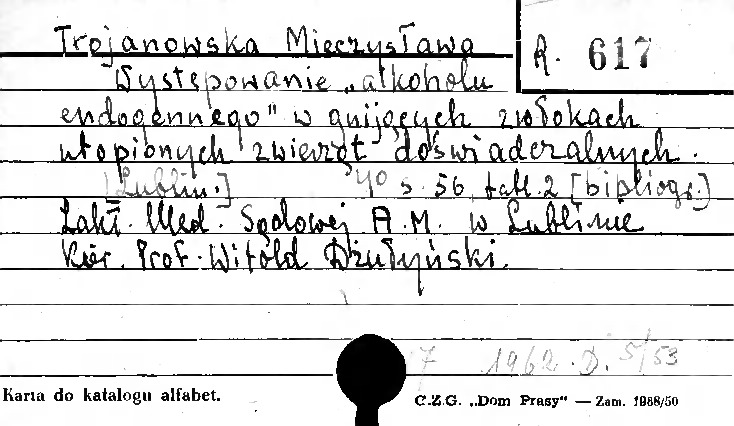 Trojanowska Mieczysława
R. 617
Występowanie „alkoholu
endogennego" w gnijących zwłokach
utopionych zwierząt doświadczalnych.
[Lublin.] 40 s. 56, tabl. 2 [bibliogr.]
Zakł. Med. Sądowej A.M. w Lublinie
Kier. Prof. Witold
1962. D. 5/53
Karta do katalogu alfabet.
C.Z.G. „Dom Prasy" — Zam. 1988/50